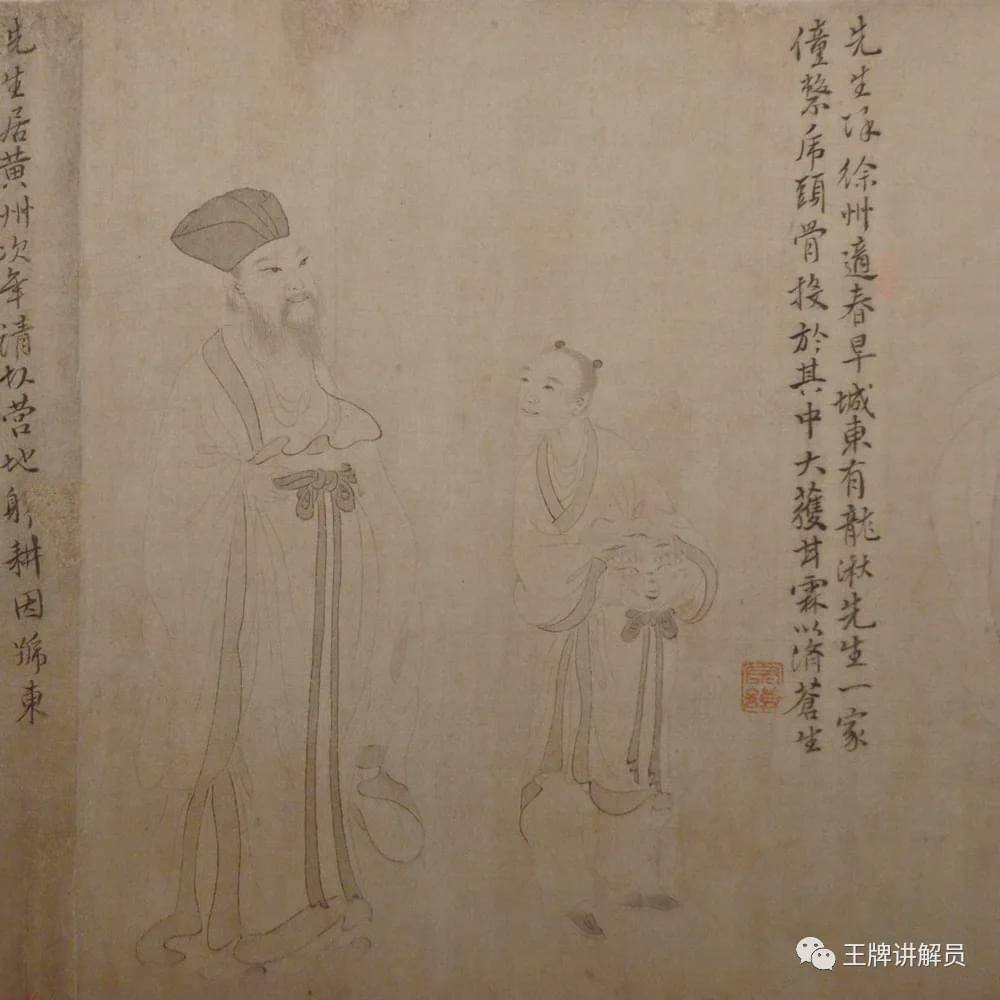 先生徐州適春旱城東有龍湫先生一家
僮繫虎頭骨投於其中大獲甘霖以濟蒼生
先生居黃州次年請故營地躬耕因號東
王牌讲解员